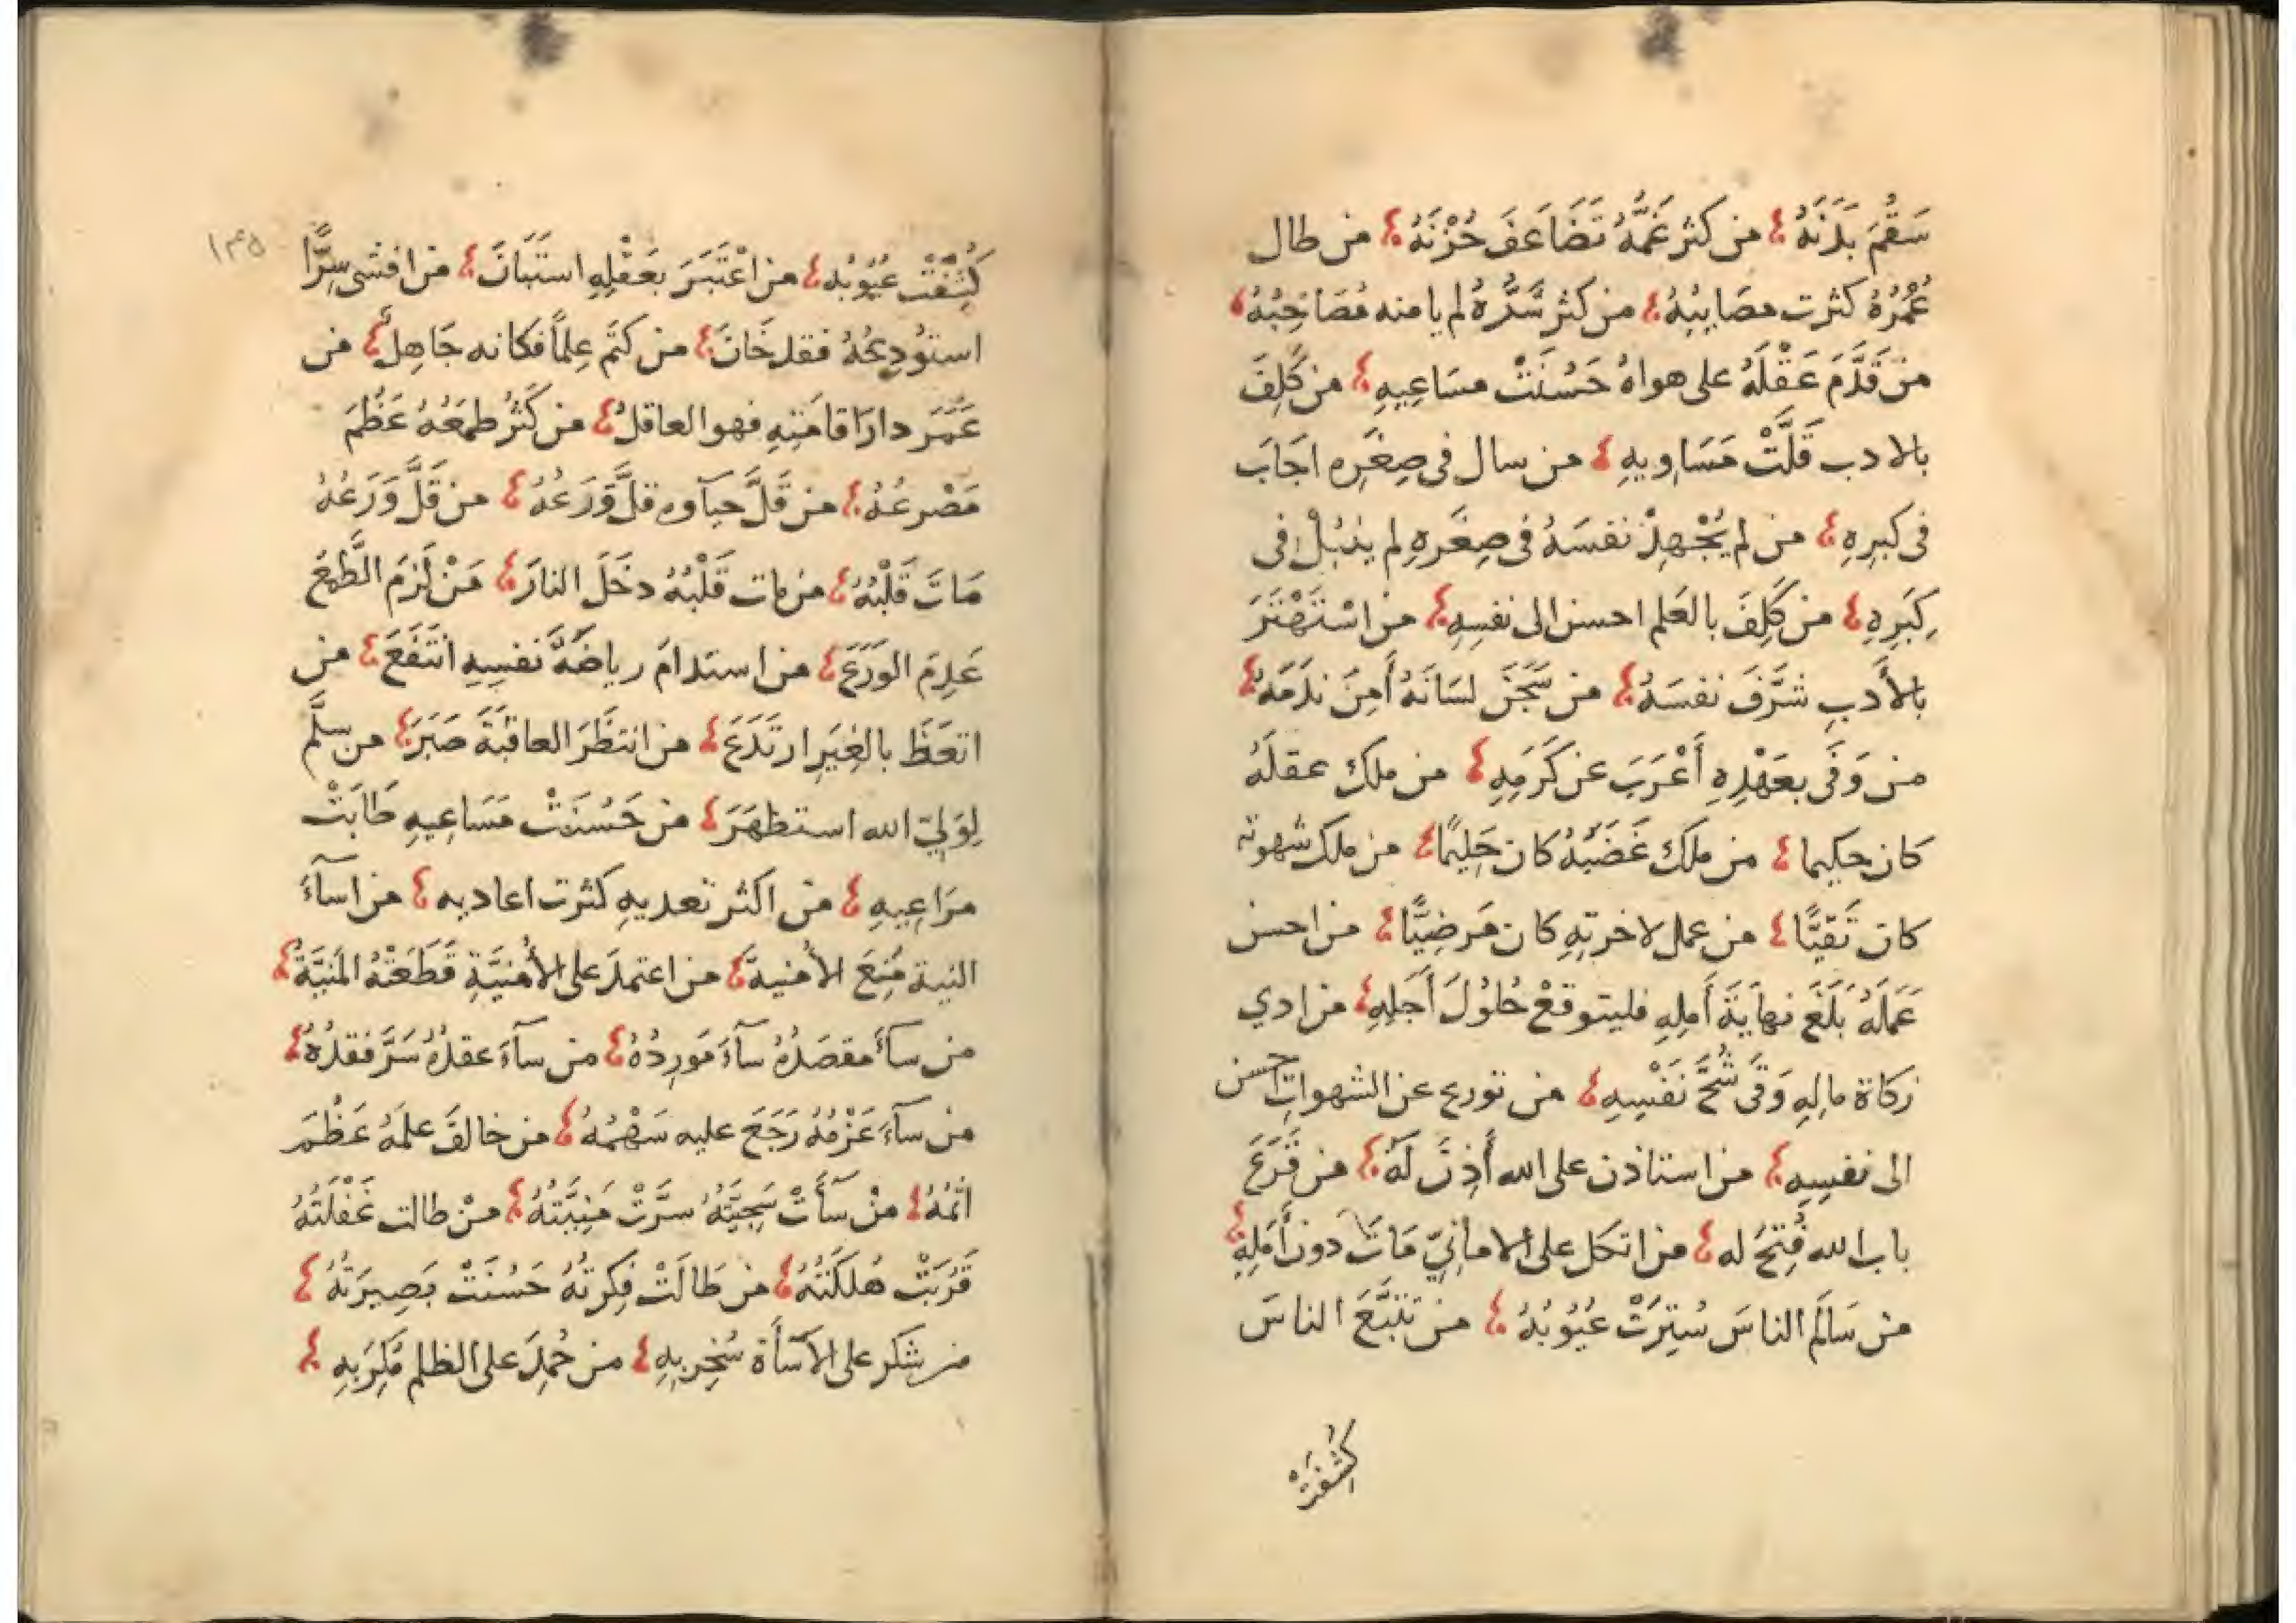 سَقُمَ بَدَنُهُ ؛ من كثر غَمُّهُ تَضَاعَفَ حُزْنُهُ ؛ من طال
عُمُرُهُ كثرت مصَايِبُهُ ؛ من كثر شَرُّهُ لم يامنه مُصَاحِبُهُ ؛
من قَدَّمَ عَقْلَهُ على هواهُ حَسُنَتْ مسَاعِيهِ ؛ من كَلِفَ
بالادب قَلَّتْ مَسَاوِيهِ ؛ من سال فى صِغَرِه اجَابَ
فى كبرِهِ ؛ من لم يُجْهِدْ نفسَهُ فى صِغَرِهِ لم ينبُلْ فى
كِبَرِهِ ؛ من كَلِفَ بالعَلم احسن الى نفسِهِ ؛ من اسْتَهْتَرَ
بالأَدبِ شَرَّفَ نفسَهُ ؛ من سَجَنَ لسَانَهُ أَمِنَ ندَمَهُ ؛
من وَفَى بعَهْدِهِ أَعْرَبَ عن كَرَمِهِ ؛ من ملك عقلَهُ
كان حكيما ؛ من ملك غَضَبَهُ كان حَلِيمًا ؛ من ملك شهوته
كان تَقيًّا ؛ من عمل لاخرتِهِ كان مَرضِيًّا ؛ من احسن
عَمَلَهُ بَلَغَ نهايَةَ أَملِهِ فليتوقعْ حُلُوْلَ أَجَلِهِ ؛ من ادي
زكاة مالِهِ وَقَى شُحَّ نَفْسِهِ ؛ من تورع عن الشهواتِ احسن
الى نفسِهِ ؛ من استاذن على الله أَذِنَ لَهُ ؛ من قَرَعَ
باب الله فُتِحَ له ؛ من اتكل على الامانِيِّ مَاتَ دون أَمَلِهِ ؛
من سَالَمَ الناسَ سُتِرَتْ عُيُوْبُهُ ؛ من تَتَبَّعَ الناسَ
كُشِفَتْ
١٤٥
كُشِفَتْ عُيُوْبُه ؛ من اعْتَبَرَ بعَقْلِهِ استَبَانَ ؛ من افشى سِرًّا
استُوْدِعَهُ فقد خَانَ ؛ من كتَم عِلماً فكانه جَاهِلٌ ؛ من
عَمَرَ دارَ اقامَتِهِ فهو العاقلُ ؛ من كَثُرَ طمَعُهُ عَظُمَ
مَصْرعُهُ ؛ من قَلَّ حيآوه قلَّ وَرَعُهُ ؛ من قَلَّ وَرَعُهُ
مَاتَ قَلْبُهُ ؛ من مات قَلْبُهُ دخَلَ النارَ ؛ مَنْ لَزِمَ الطَّمَعَ
عَدِمَ الوَرَعَ ؛ من استدامَ رياضَةَ نفسِهِ انتَفَعَ ؛ من
اتعَظَ بالغِيَرِ ارتَدَعَ ؛ من انتظَرَ العاقبَةَ صَبَرَ ؛ من سلَّم
لِوَلِيّ الله استظهَرَ ؛ من حَسُنَتْ مَسَاعِيهِ طَابَتْ
مرَاعِيهِ ؛ من اكثر تعديهِ كثرت اعاديه ؛ من اسآءَ
النية مُنِعَ الأمنيةَ ؛ من اعتمدَ على الأُمنِيَّةِ قَطَعَتْهُ المَنِيَّةُ ؛
من سآءَ مقصَدُهُ سآءَ مَورِدُهُ ؛ من سآءَ عقدُهُ سَرَّ فقدُهُ ؛
من سآءَ عَزْمُهُ رَجَعَ عليه سَهْمُهُ ؛ من خالفَ علمَهُ عَظُمَ
اثمُهُ ؛ منْ سآءَتْ سَجِيَّتُهُ سرَّتْ مَنِيَّتُهُ ؛ منْ طالت غَفْلَتُهُ
قَرُبَتْ هَلكَتُهُ ؛ من طالَتْ فِكرتُهُ حَسُنَتْ بَصِيرَتُهُ ؛
من شكر على الاسآءَة سُخِر بِهِ ؛ من حُمِدَ على الظلم مُكِرَ بِهِ ؛